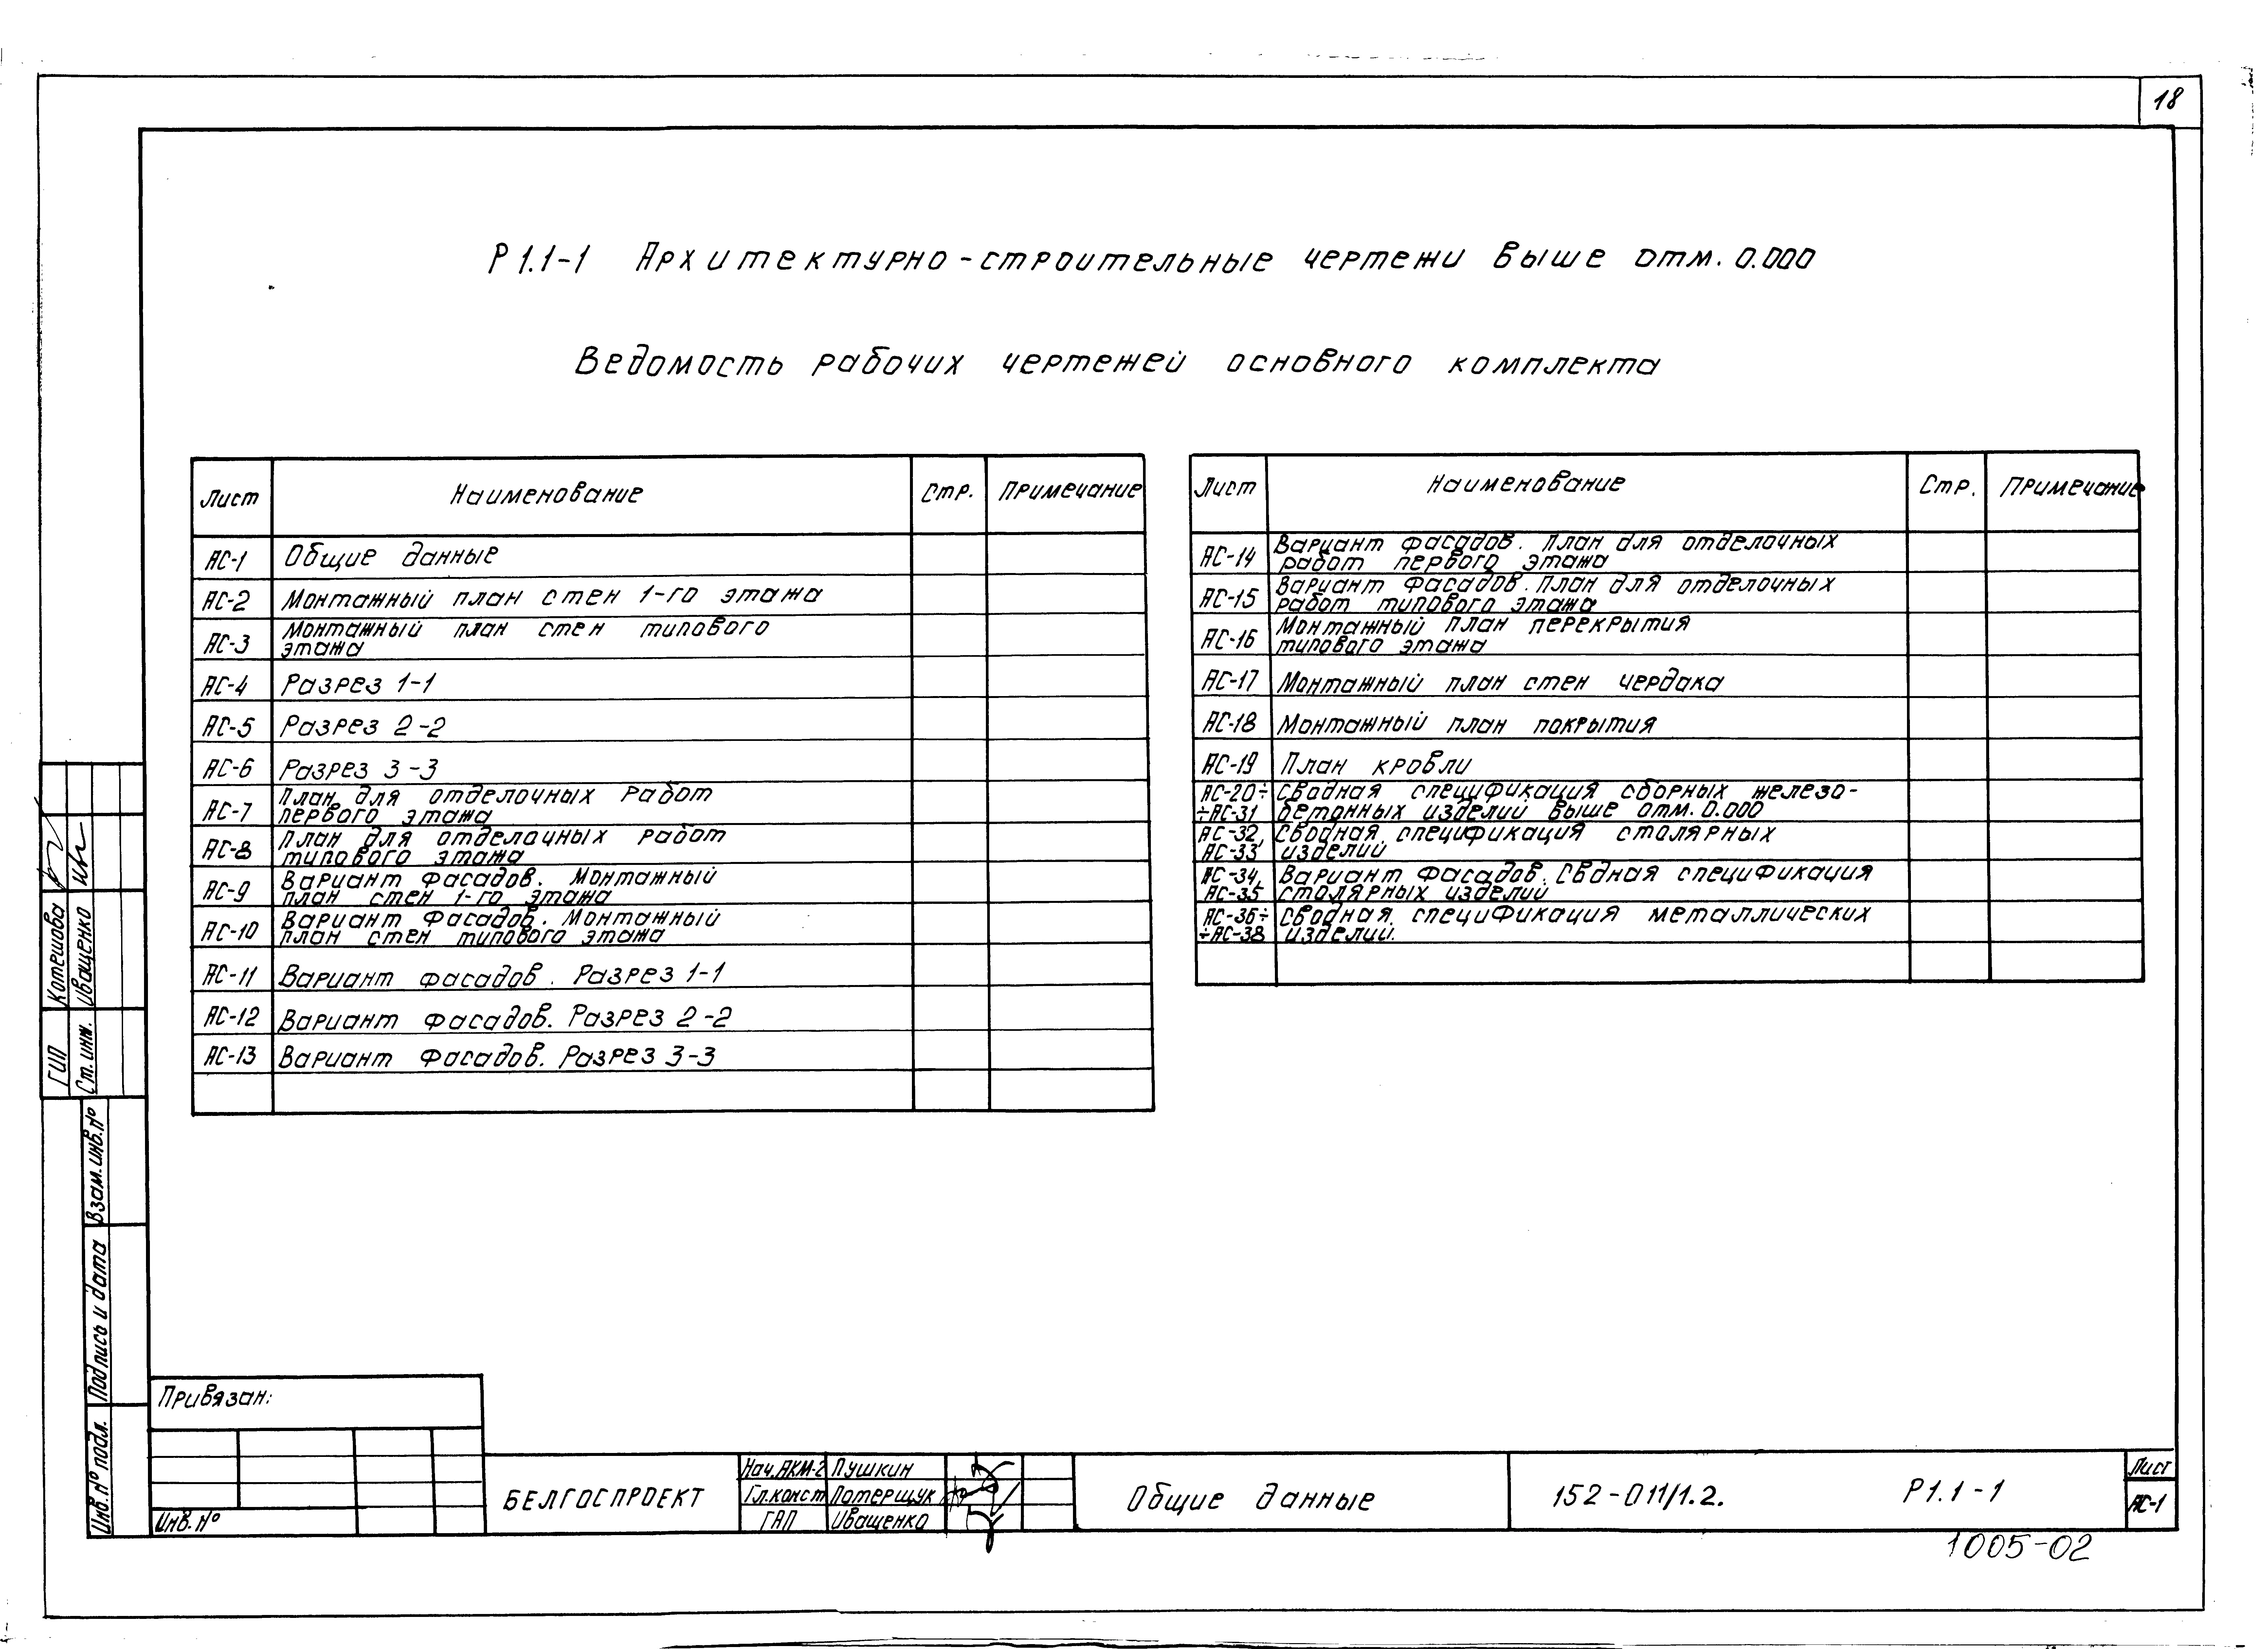 18
Р 1.1-1 Архитектурно-строительные чертежи выше отм. 0.000
Ведомость рабочих чертежей основного комплекта
Лист Наименование Стр. Примечание
АС-1 Общие данные
АС-2 Монтажный план стен 1-го этажа
АС-3 Монтажный план стен типового
этажа
АС-4 Разрез 1-1
АС-5 Разрез 2-2
АС-6 Разрез 3-3
АС-7 План для отделочных работ
первого этажа
АС-8 План для отделочных работ
типового этажа
АС-9 Вариант фасадов. Монтажный
план стен 1-го этажа
АС-10 Вариант фасадов. Монтажный
план стен типового этажа
АС-11 Вариант фасадов. Разрез 1-1
АС-12 Вариант фасадов. Разрез 2-2
АС-13 Вариант фасадов. Разрез 3-3
Лист Наименование Стр. Примечание
АС-14 Вариант фасадов. План для отделочных
работ первого этажа
АС-15 Вариант фасадов. План для отделочных
работ типового этажа
АС-16 Монтажный план перекрытия
типового этажа
АС-17 Монтажный план стен чердака
АС-18 Монтажный план покрытия
АС-19 План кровли
АС-20÷ Сводная спецификация сборных железо-
÷АС-31 бетонных изделий выше отм. 0.000
АС-32, Сводная спецификация столярных
АС-33 изделий
АС-34, Вариант фасадов. Сводная спецификация
АС-35 столярных изделий
АС-36÷ Сводная спецификация металлических
÷АС-38 изделий.
ГИП Котешова
Ст. инж. Иващенко
Взам. инв. №
Подпись и дата
Инв. № подл.
Привязан:
Инв. №
БЕЛГОСПРОЕКТ
Нач. АКМ-2 Пушкин
Гл. конст Потерщук
ГАП Иващенко
Общие данные
152-011/1.2. Р1.1-1
Лист
АС-1
1005-02